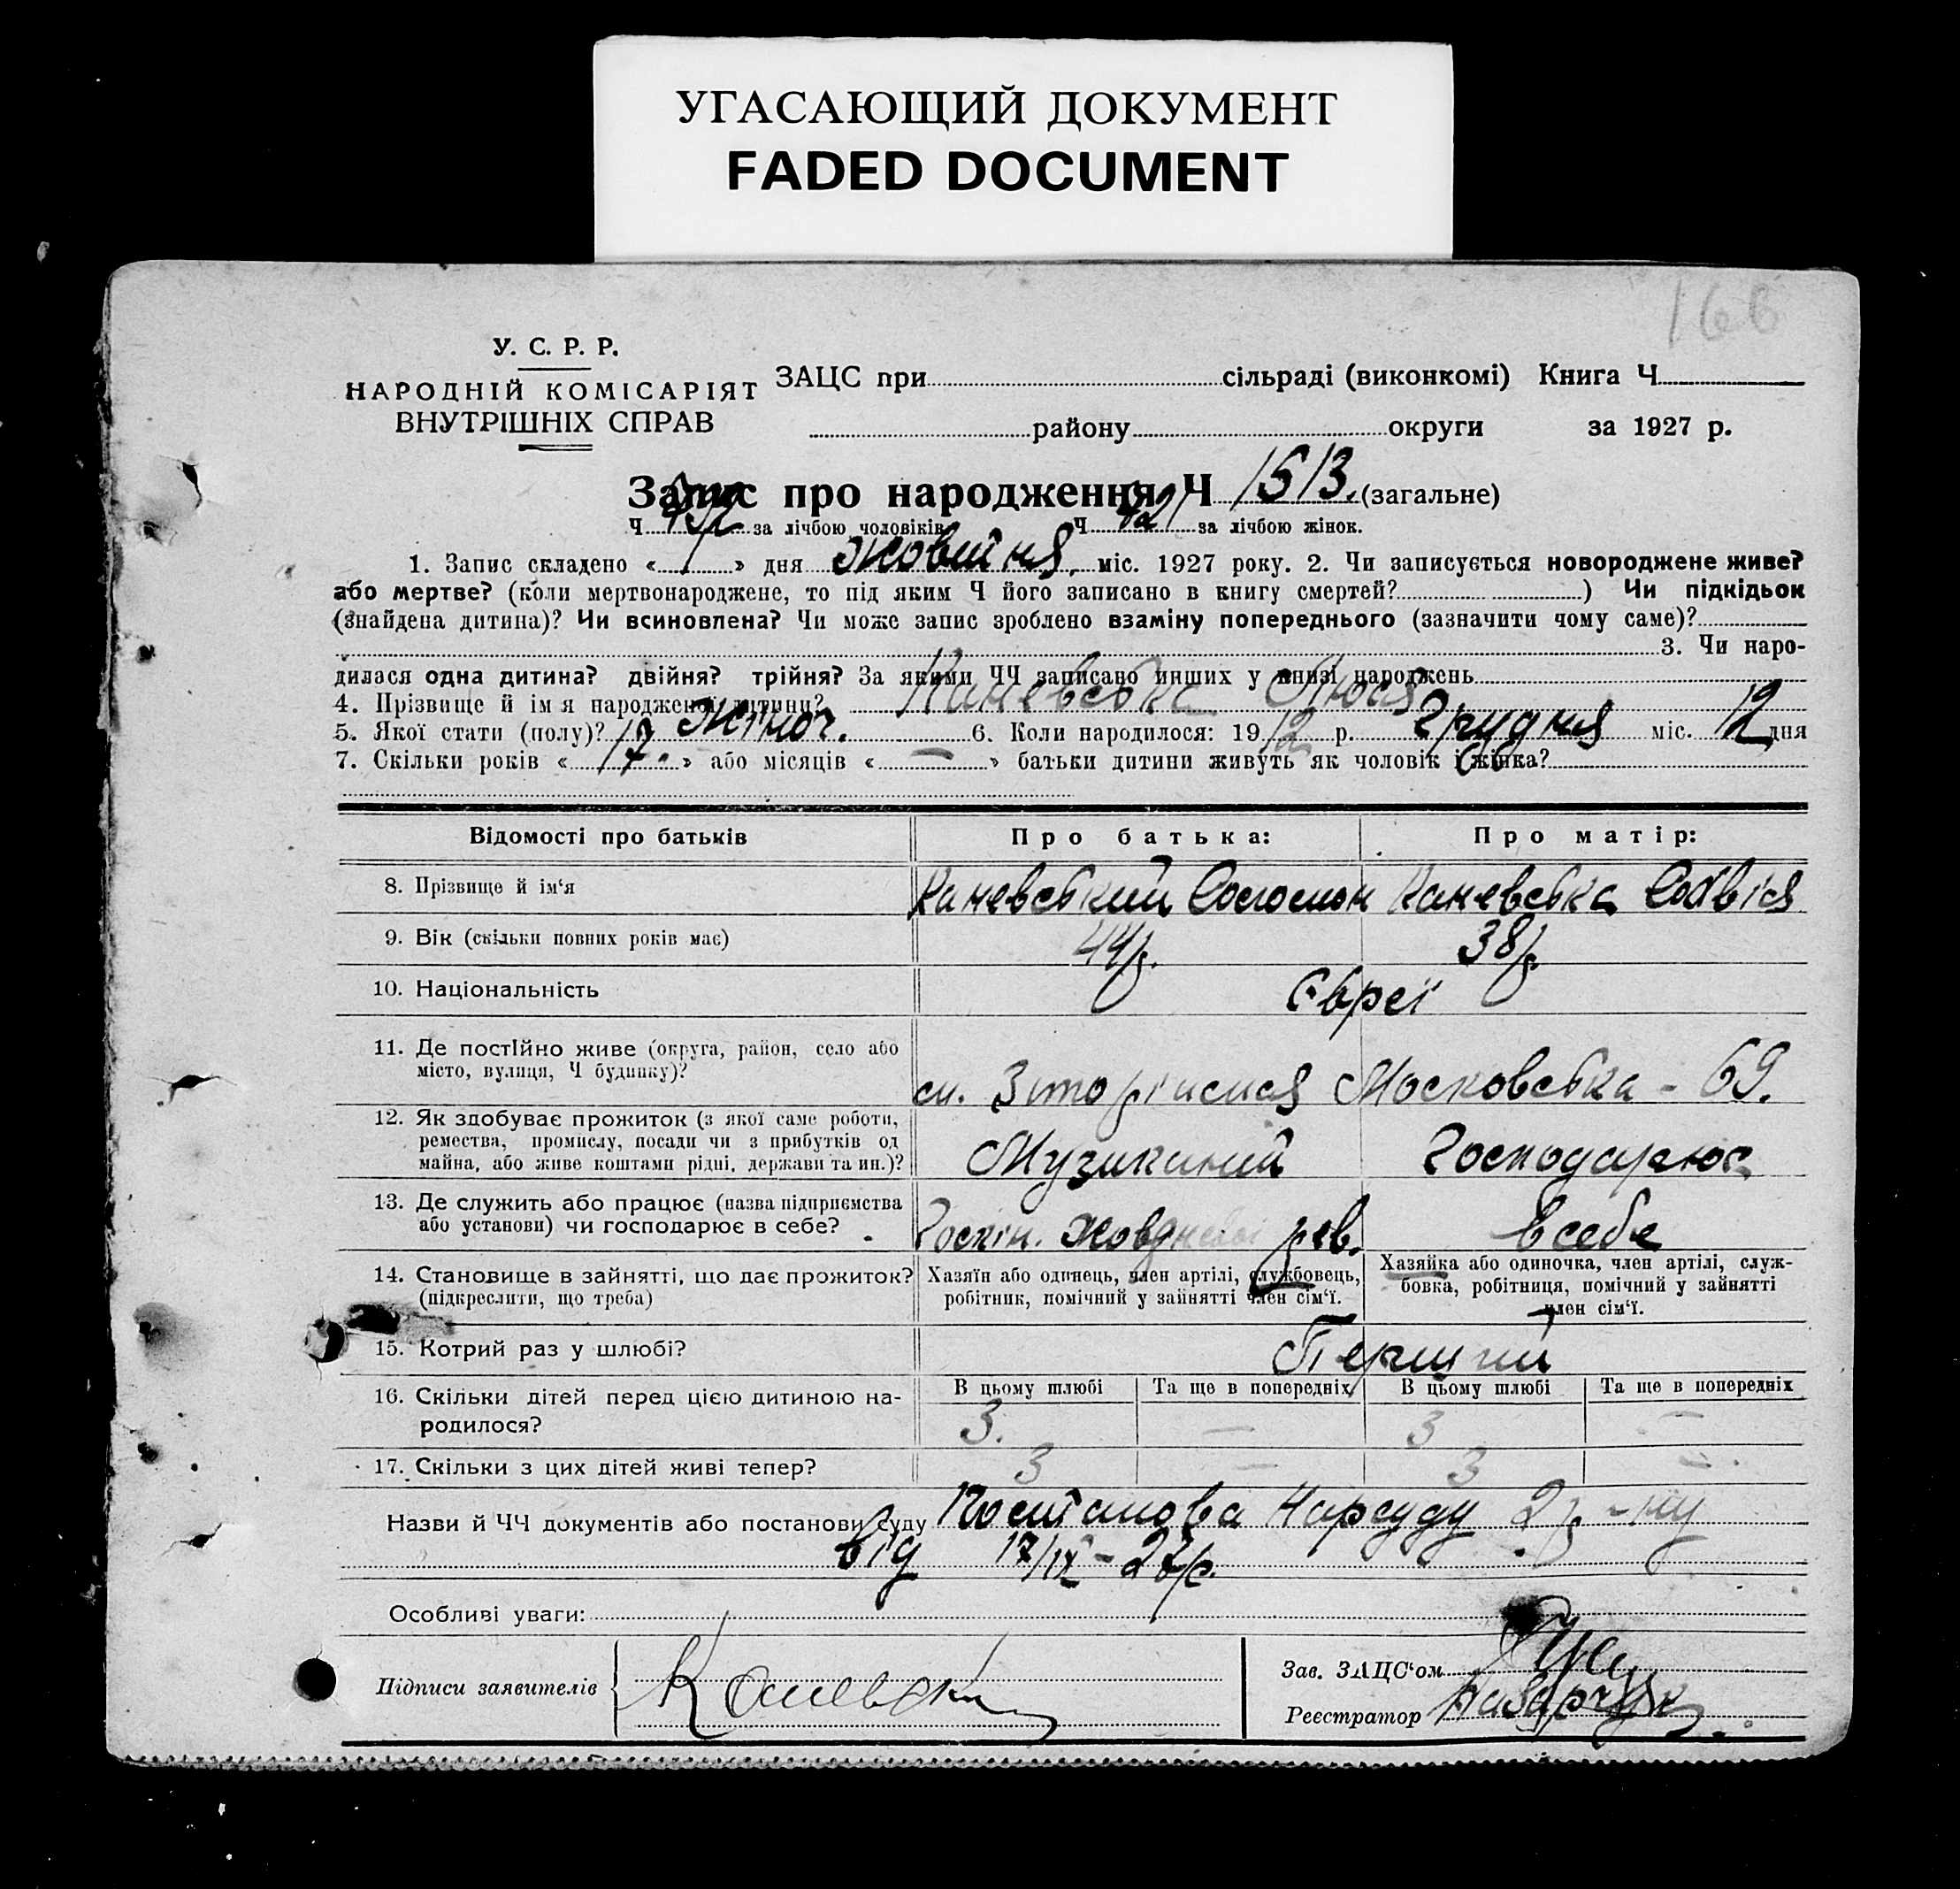 УГАСАЮЩИЙ ДОКУМЕНТ
FADED DOCUMENT
166
У. С. Р. Р.
НАРОДНІЙ КОМІСАРІЯТ
ВНУТРІШНІХ СПРАВ
ЗАЦС при сільраді (виконкомі) Книга Ч
району округи за 1927 р.
Запис про народження Ч 1513. (загальне)
Ч за лічбою чоловіків Ч за лічбою жінок.
1. Запис складено « 1 » дня Жовтня міс. 1927 року. 2. Чи записується новороджене живе?
або мертве? (коли мертвонароджене, то під яким Ч його записано в книгу смертей? ) Чи підкідьок
(знайдена дитина)? Чи всиновлена? Чи може запис зроблено взаміну попереднього (зазначити чому саме)?
3. Чи наро-
дилася одна дитина? двійня? трійня? За якими ЧЧ записано инших у книзі народжень
4. Прізвище й ім'я народженої дитини? Каневська
5. Якої стати (полу)? Жіноч. 6. Коли народилося: 1912 р. Грудня міс. 12 дня
7. Скільки років « 17. » або місяців « — » батьки дитини живуть як чоловік і жінка?
Відомості про батьків Про батька: Про матір:
8. Прізвище й ім'я Каневський Соломон Каневська
9. Вік (скільки повних років має) 44р. 38р.
10. Національність Євреї
11. Де постійно живе (округа, район, село або
місто, вулиця, Ч будинку)? Московська - 69.
12. Як здобуває прожиток (з якої саме роботи,
ремества, промислу, посади чи з прибутків од
майна, або живе коштами рідні, держави та ин.)? Господарює
13. Де служить або працює (назва підприємства
або установи) чи господарює в себе? рев. В себе
14. Становище в зайнятті, що дає прожиток?
(підкреслити, що треба)
Хазяїн або одинець, член артілі, службовець,
робітник, помічний у зайнятті член сім'ї.
Хазяйка або одиночка, член артілі, служ-
бовка, робітниця, помічний у зайнятті
член сім'ї.
15. Котрий раз у шлюбі? Перший
16. Скільки дітей перед цією дитиною на-
родилося?
В цьому шлюбі Та ще в попередніх В цьому шлюбі Та ще в попередніх
3. — 3 —
17. Скільки з цих дітей живі тепер? 3 — 3 —
Назви й ЧЧ документів або постанови суду Постанова Нарсуду 2 р-ну
від 17/IX - 27р.
Особливі уваги:
Підписи заявителів
Зав. ЗАЦС'ом
Реєстратор